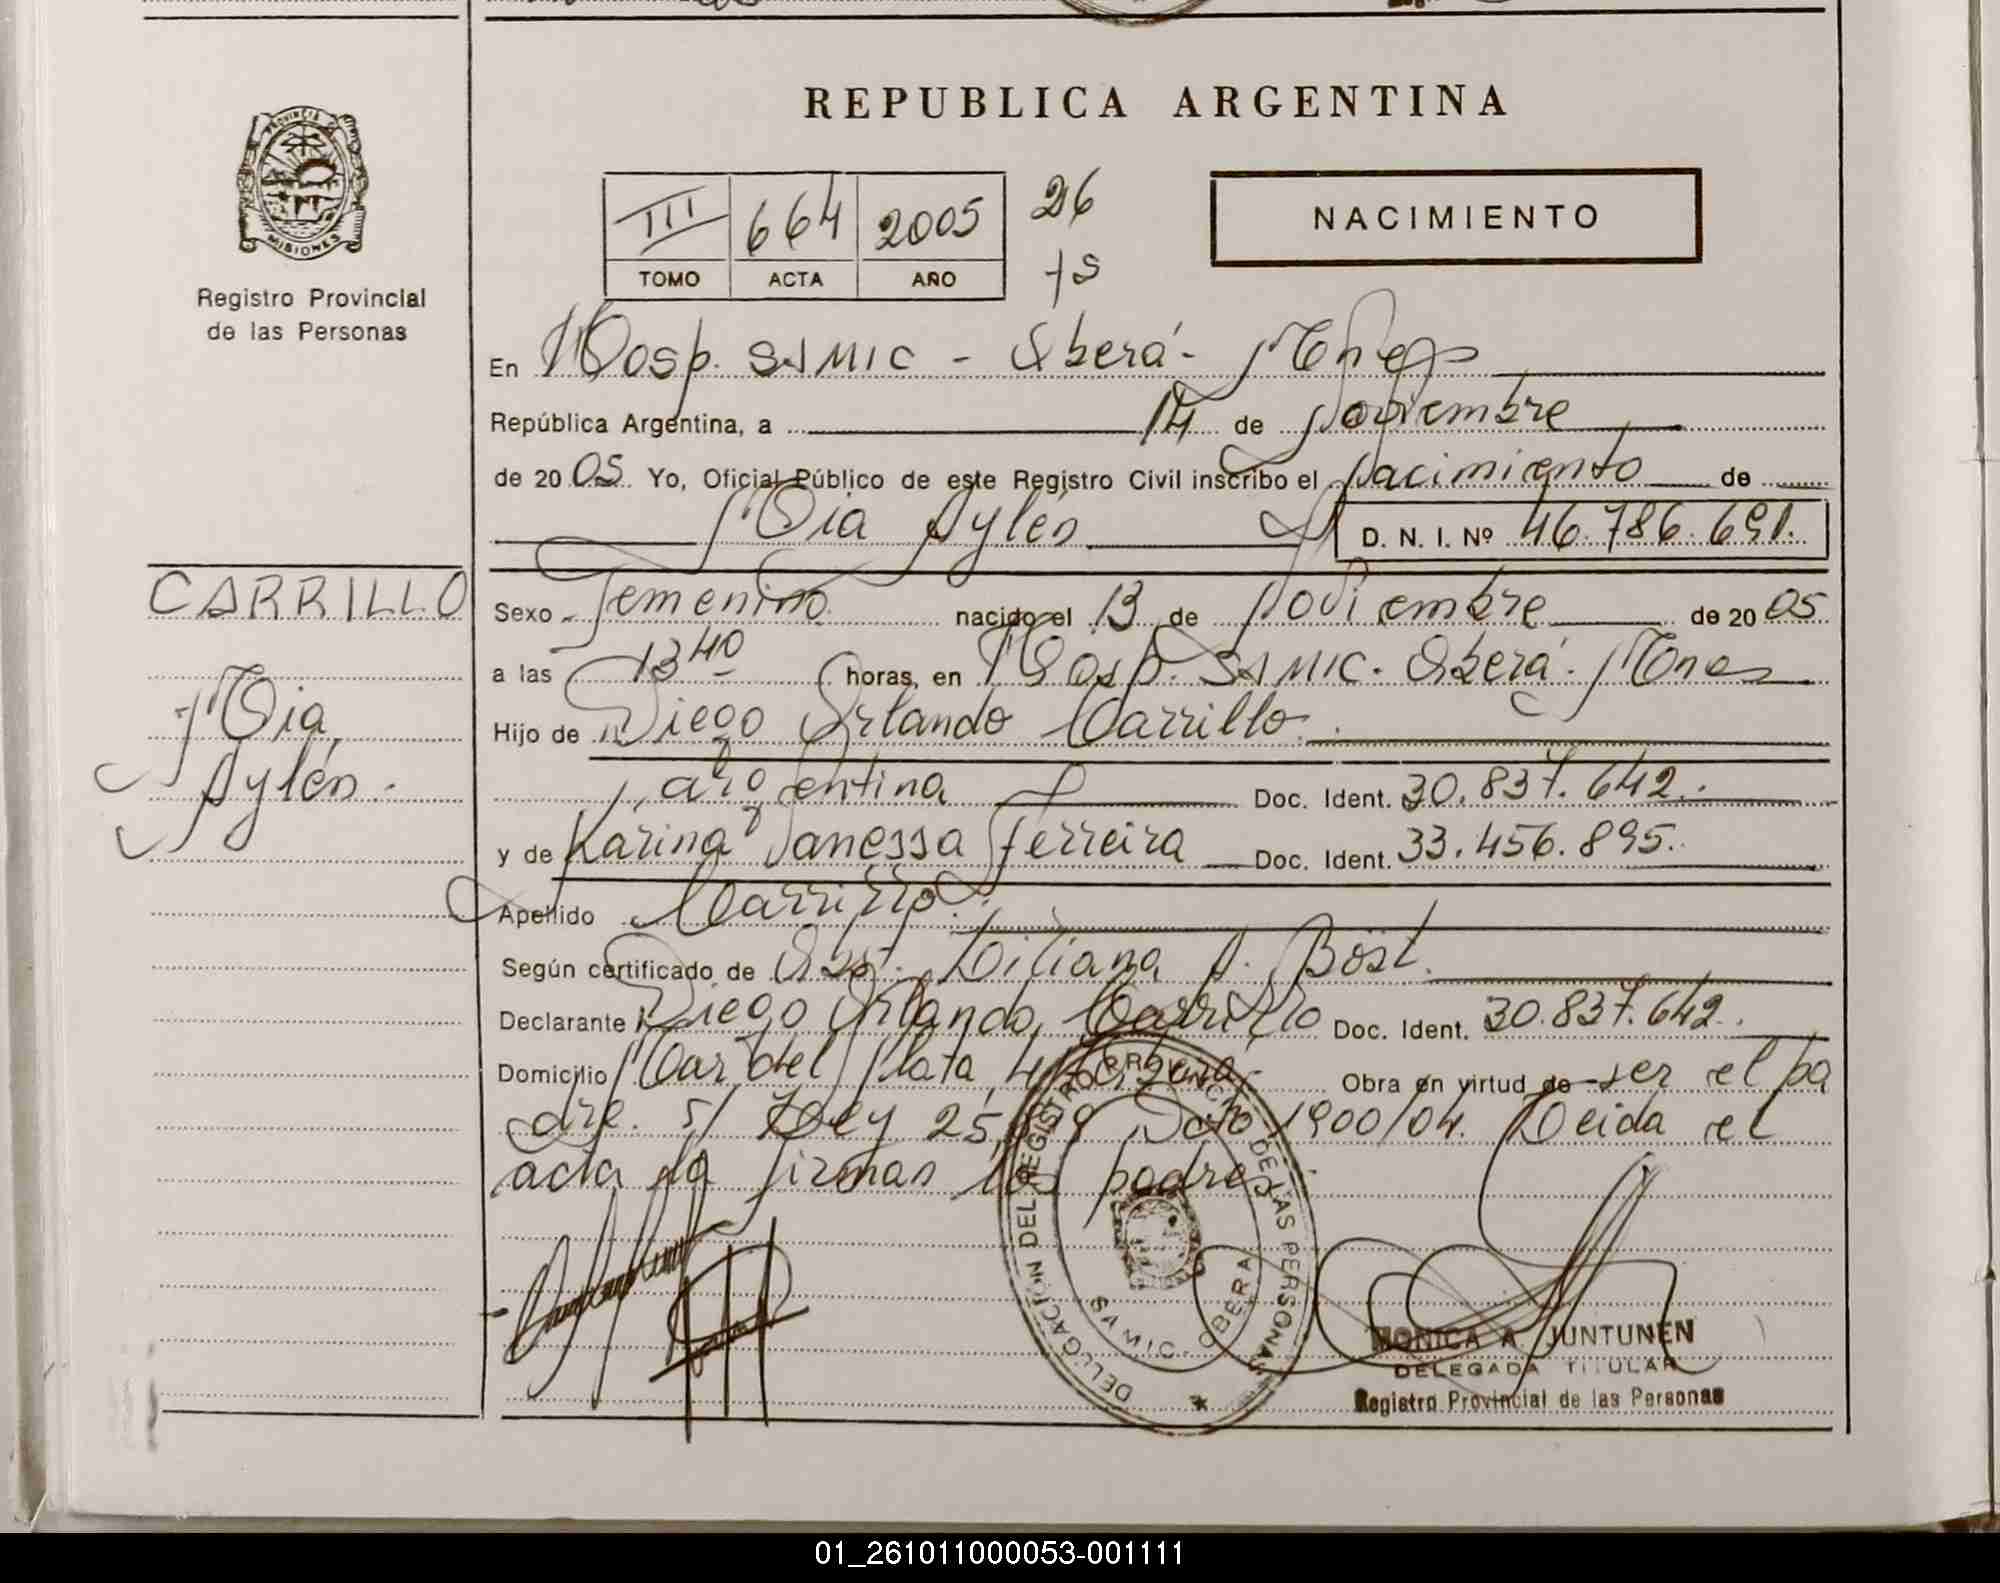 REPUBLICA ARGENTINA
PROVINCIA
MISIONES
Registro Provincial
de las Personas
III 664 2005 26
TOMO ACTA AÑO
NACIMIENTO
En Hosp. SAMIC - Oberá - Mnes
República Argentina, a 14 de Noviembre
de 20 05 Yo, Oficial Público de este Registro Civil inscribo el Nacimiento de
Mia Aylén D. N. I. Nº 46.786.691.
CARRILLO
Mia
Aylén.
Sexo Femenino nacido el 13 de Noviembre de 20 05
a las 13 40 horas, en Hosp. SAMIC. Oberá. Mnes
Hijo de Diego Orlando Carrillo.
argentina Doc. Ident. 30.837.642.
y de Karina Vanessa Ferreira Doc. Ident. 33.456.895.
Apellido Carrillo.
Según certificado de Obst. Liliana A. Böst.
Declarante Diego Orlando Carrillo Doc. Ident. 30.837.642.
Domicilio Mar del Plata Obra en virtud de ser el pa
dre. s/ Ley 25 Dcto 1900/04. Leida el
acta la firman los padres.
DELEGACIÓN DEL REGISTRO PROVINCIAL DE LAS PERSONAS
SAMIC - OBERA
MONICA A JUNTUNEN
DELEGADA TITULAR
Registro Provincial de las Personas
01_261011000053-001111